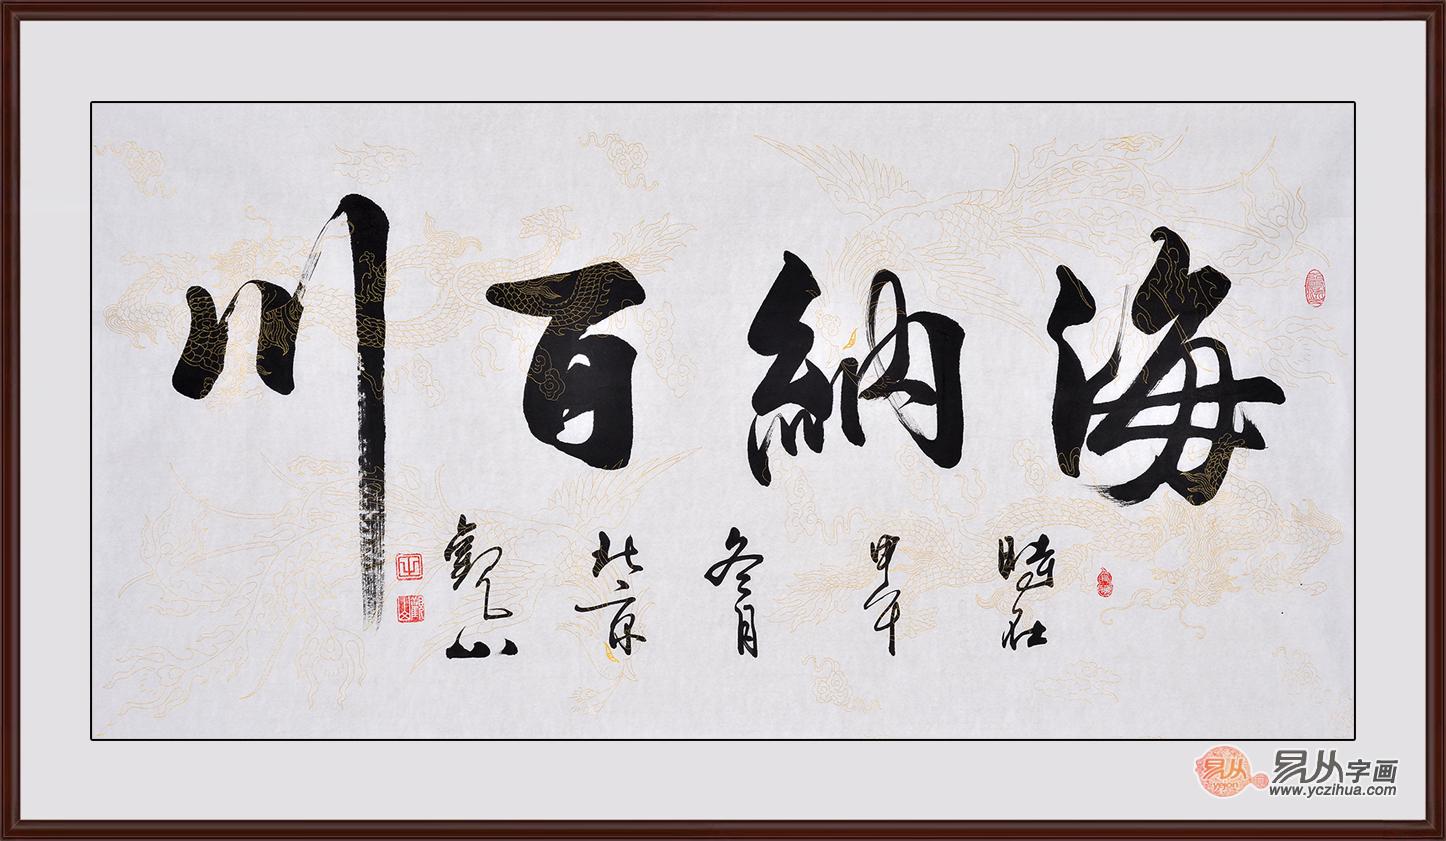 海納百川
時在
甲午
冬月
北京
觀山
易从字画
yejon
www.yczihua.com